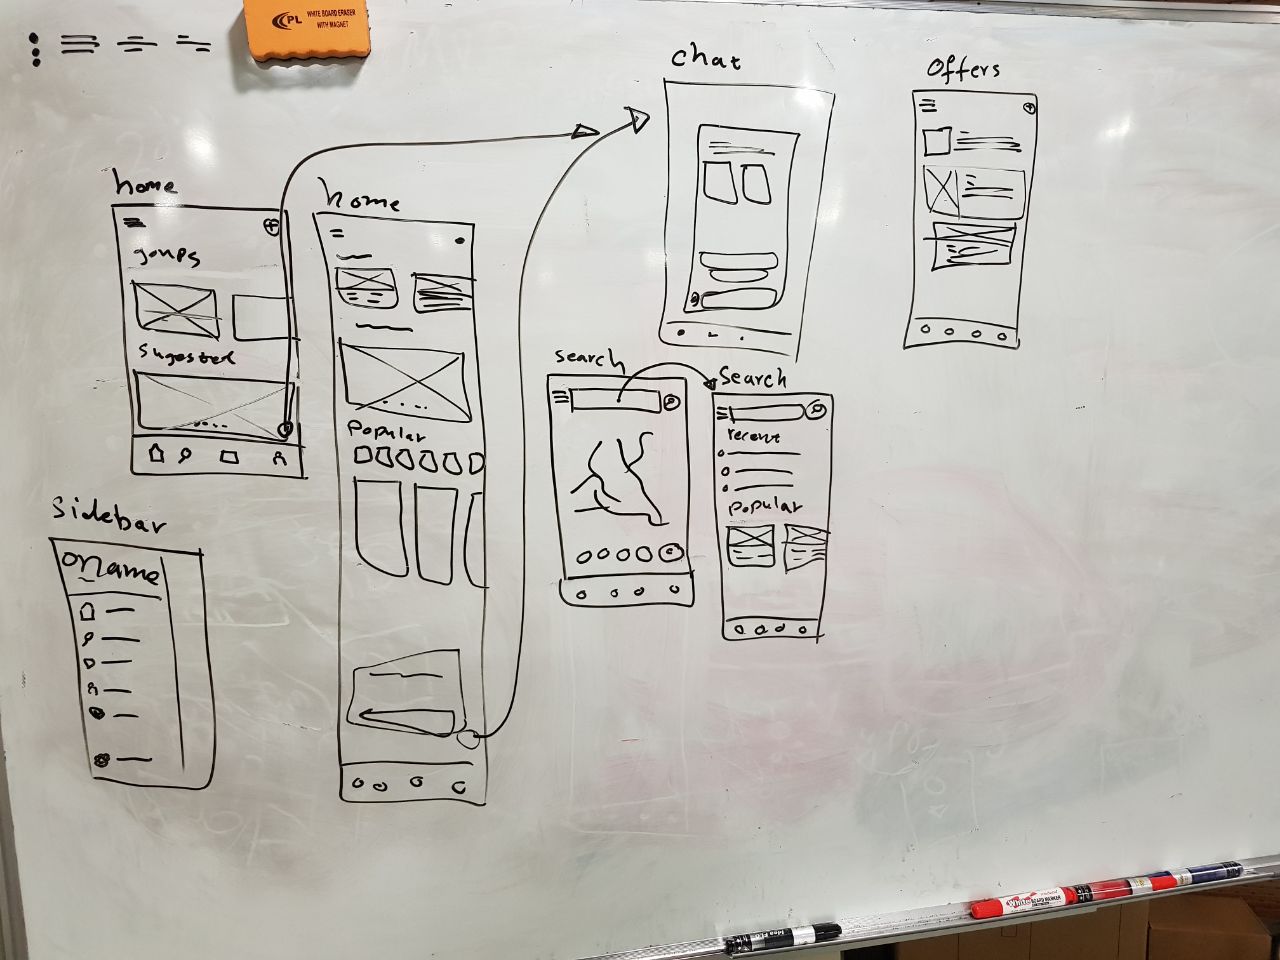 CPL WHITE BOARD ERASER
WITH MAGNET
chat
offers
home
home
goups
Sugested
Popular
search
Search
recent
Popular
Sidebar
name